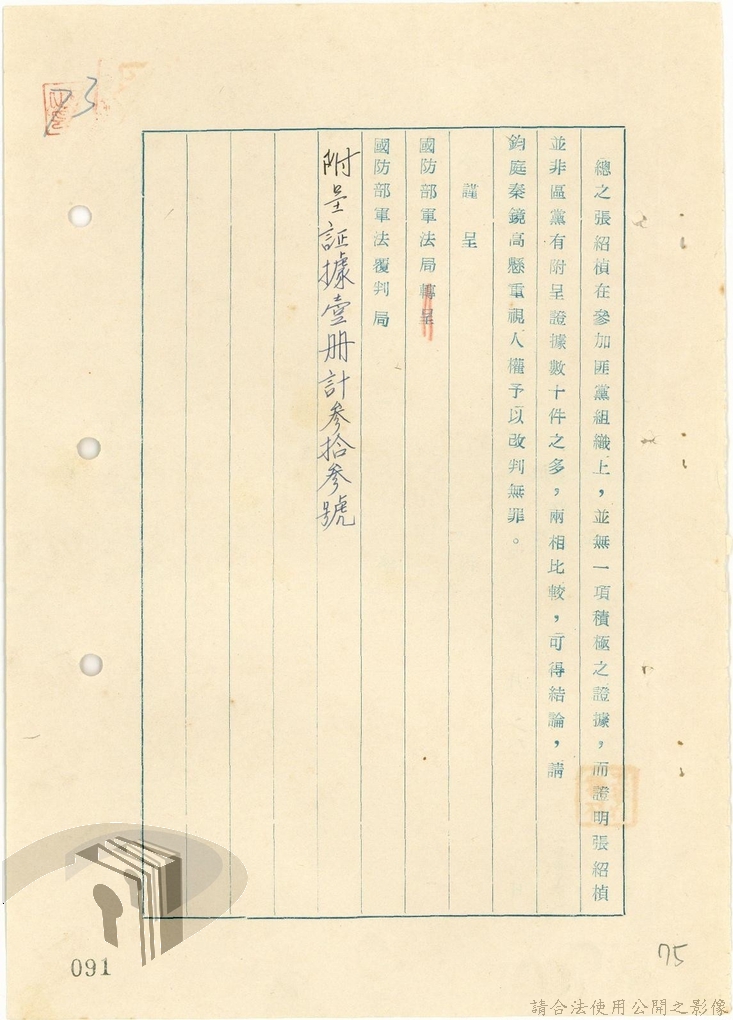 總之張紹楨在參加匪黨組織上，並無一項積極之證據，而證明張紹楨
並非區黨有附呈證據數十件之多，兩相比較，可得結論，請
鈞庭秦鏡高懸重視人權予以改判無罪。
謹呈
國防部軍法局轉呈
國防部軍法覆判局
附呈証據壹册計參拾參號
73
091
75
請合法使用公開之影像